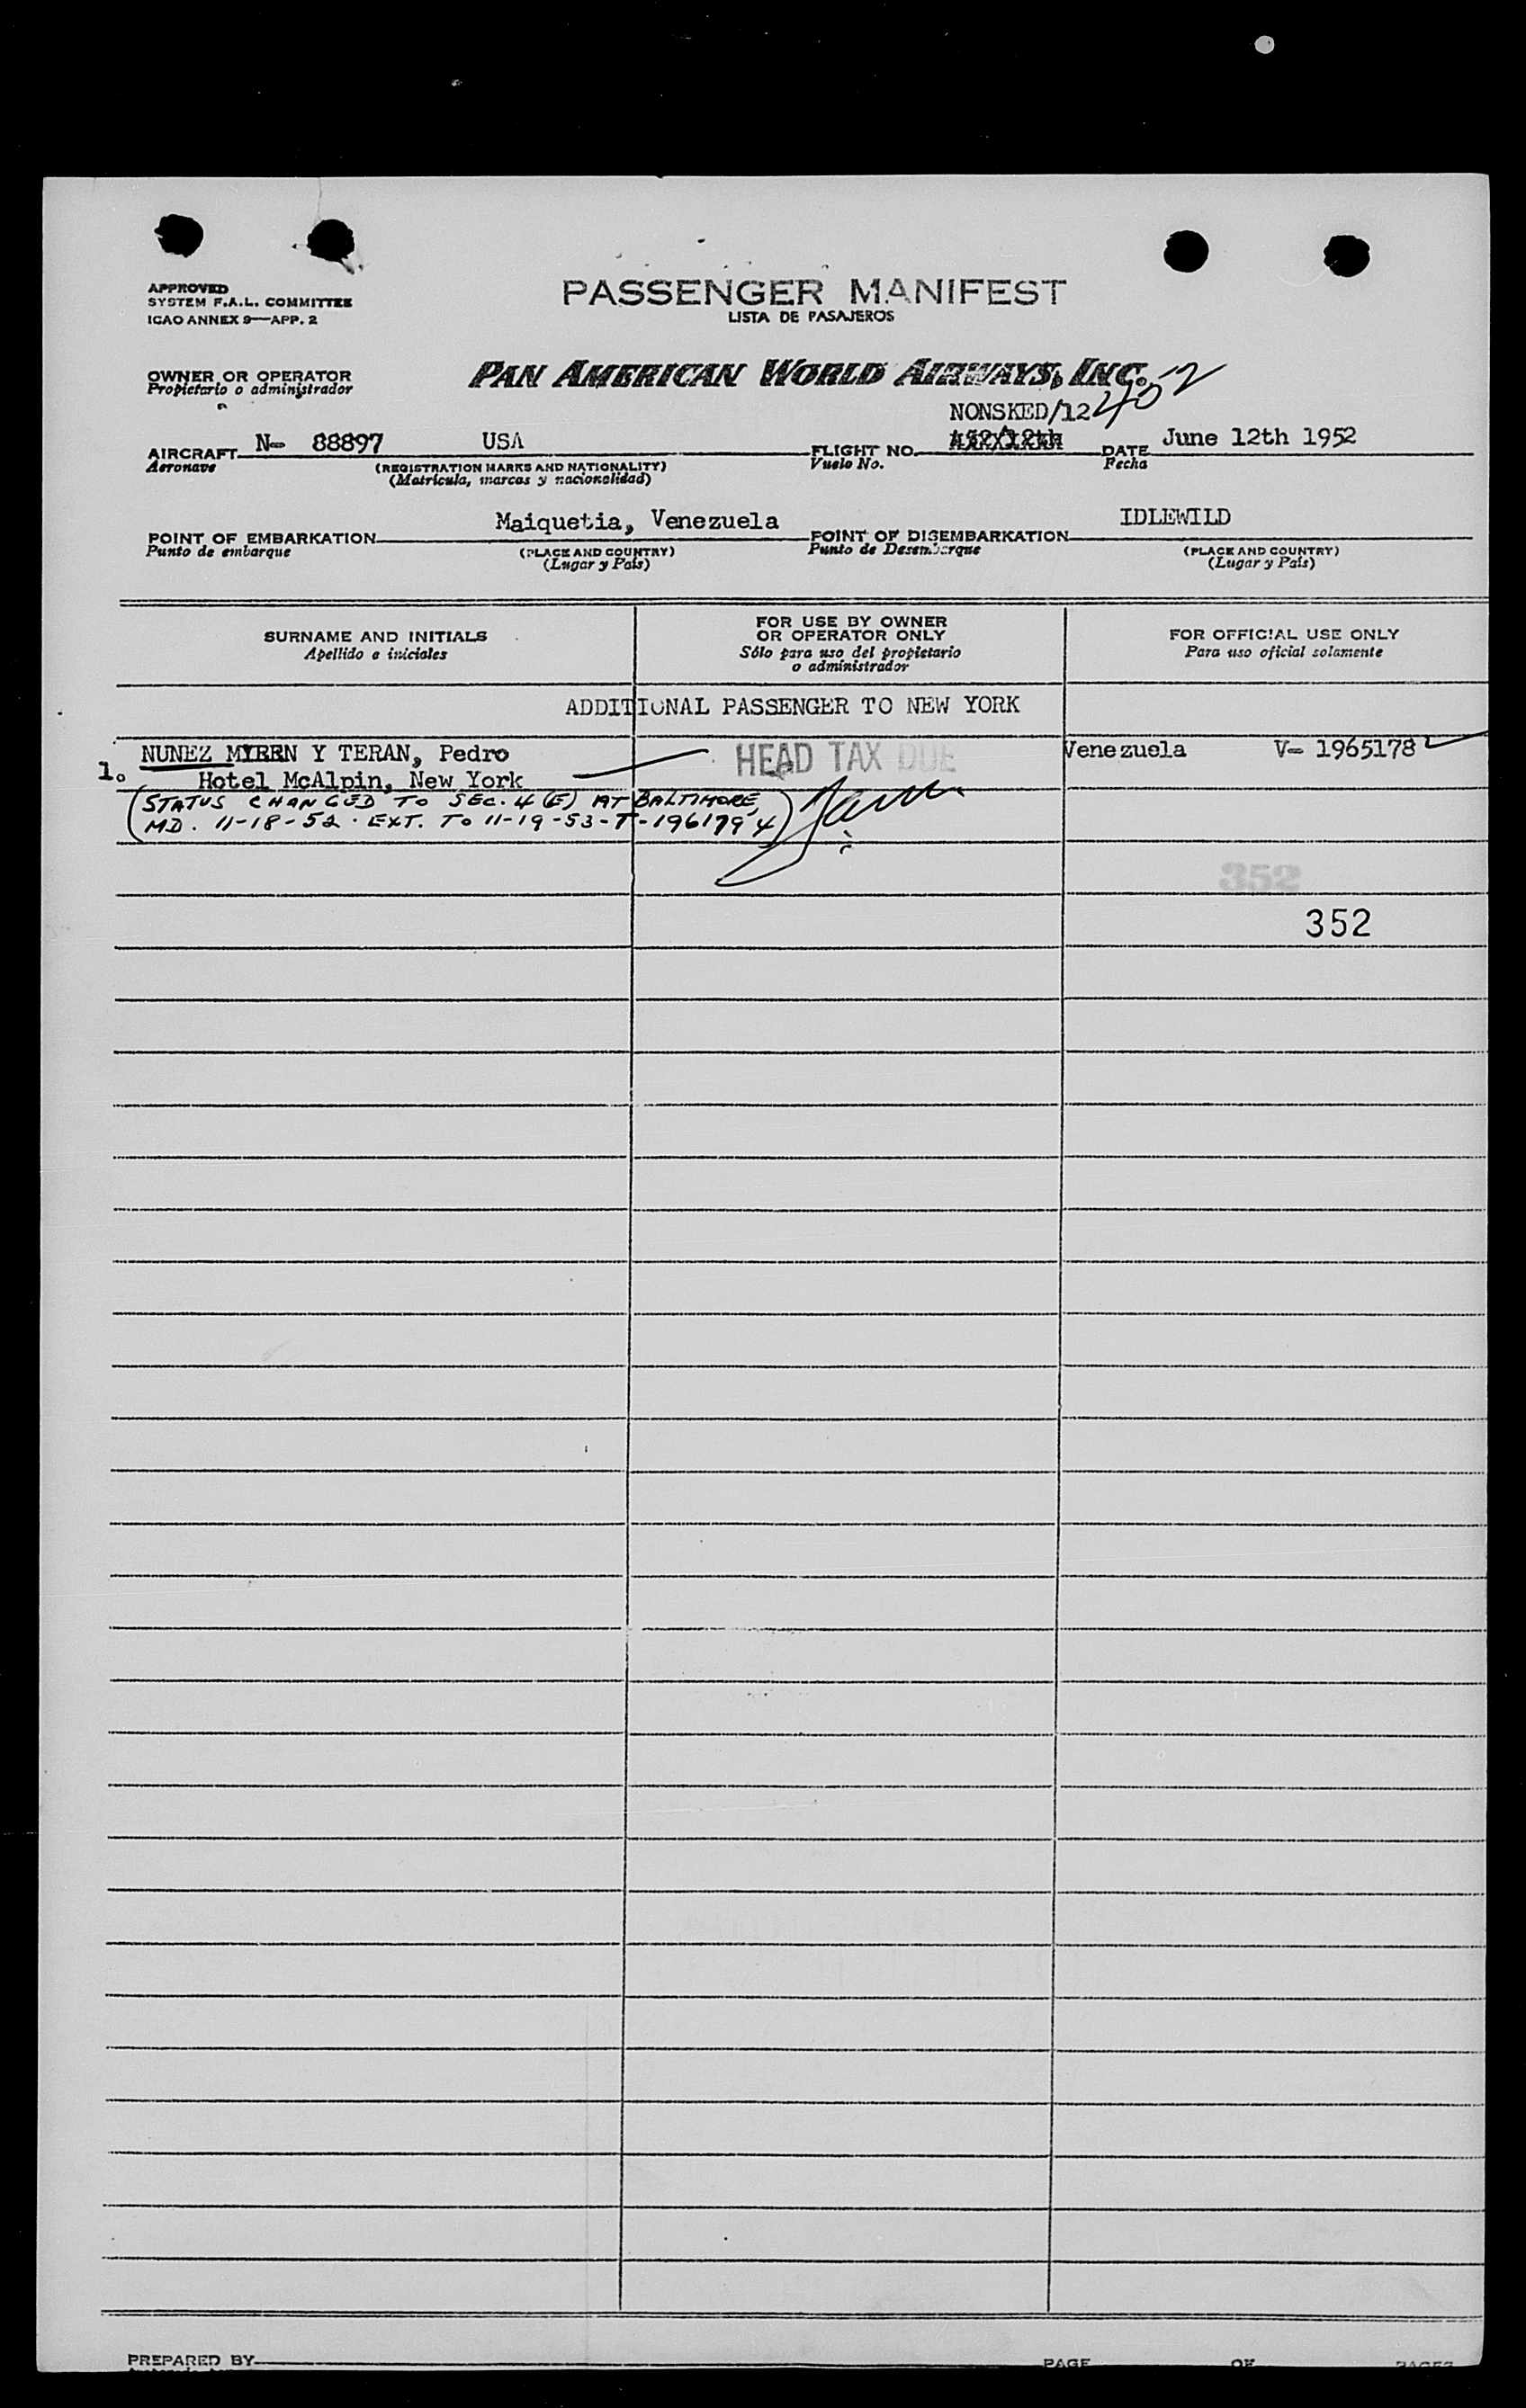 APPROVED
SYSTEM F.A.L. COMMITTEE
ICAO ANNEX 9—APP. 2
PASSENGER MANIFEST
LISTA DE PASAJEROS
OWNER OR OPERATOR
Propietario o administrador
PAN AMERICAN WORLD AIRWAYS, INC.
NONSKED/12 402
AIRCRAFT N- 88897 USA FLIGHT NO. 452/12th DATE June 12th 1952
Aeronave (REGISTRATION MARKS AND NATIONALITY) Vuelo No. Fecha
(Matrícula, marcas y nacionalidad)
POINT OF EMBARKATION Maiquetia, Venezuela POINT OF DISEMBARKATION IDLEWILD
Punto de embarque (PLACE AND COUNTRY) Punto de Desembarque (PLACE AND COUNTRY)
(Lugar y País) (Lugar y País)
SURNAME AND INITIALS
Apellido e iniciales
FOR USE BY OWNER
OR OPERATOR ONLY
Sólo para uso del propietario
o administrador
FOR OFFICIAL USE ONLY
Para uso oficial solamente
ADDITIONAL PASSENGER TO NEW YORK
1. NUNEZ MYREN Y TERAN, Pedro HEAD TAX DUE Venezuela V- 1965178
Hotel McAlpin, New York
(STATUS CHANGED TO SEC. 4 (E) AT BALTIMORE,
MD. 11-18-52. EXT. TO 11-19-53-T-1961794)
352
352
PREPARED BY PAGE OF PAGES